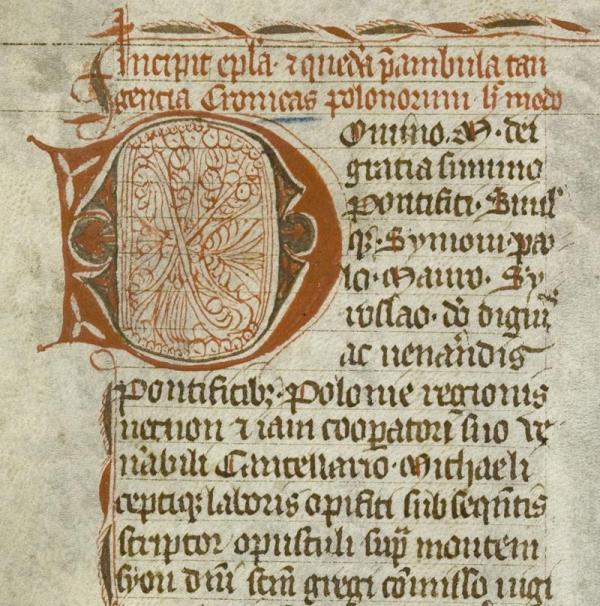 Incipit epl̄a · ⁊ quedā p̄ambula tan
gencia Cronicas polonorum h̄ modo
Omino · M · dei
gracia summo
Pontifici · Simil
q̨ · Symoni · pau
lo · Mauro · Sy
roslao · do digni
ac uenandis
Pontificibꝫ · Polonie regionis
necnon ⁊ iam coopatori suo ve
nabili Cancellario · Michaeli
ceptiqꝫ laboris opifici subseqūtis
scriptor opusculi sup̄ montem
syon dn̄i sc̄m gregi cōmisso uigi